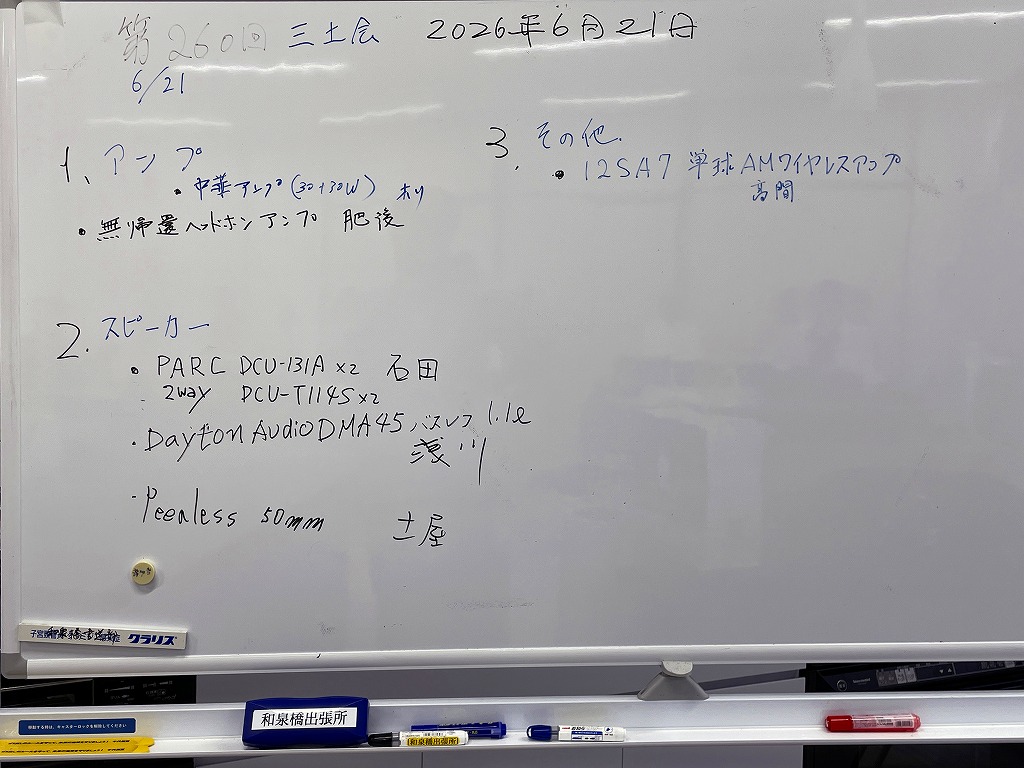 第260回 三土会 2026年6月21日
6/21
1、アンプ
・中華アンプ(30+30W) ホリ
・無帰還ヘッドホンアンプ 肥後
2. スピーカー
・PARC DCU-131A×2 石田
2way DCU-T114S×2
・Dayton Audio DMA45 バスレフ 1.1ℓ
浅川
・Peerless 50mm 土屋
3. その他.
・12SA7 単球AMワイヤレスアンプ
高間
クラリス
移動する時は、キャスターロックを解除してください
和泉橋出張所
和泉橋出張所